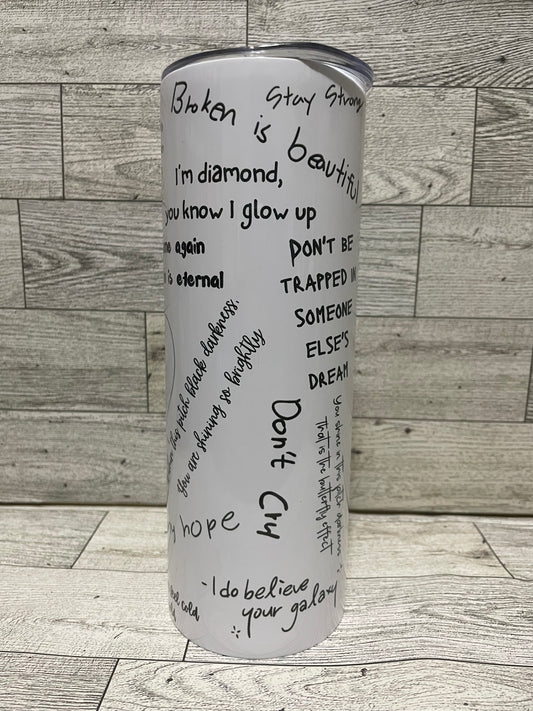 Broken is beautiful
Stay Strong
I'm diamond,
you know I glow up
again
is eternal
DON'T BE
TRAPPED IN
SOMEONE
ELSE'S
DREAM
this pitch black darkness,
You are shining so brightly
Don't Cry
you shine in this pitch darkness
That is the butterfly effect
my hope
-I do believe
your galaxy
cold